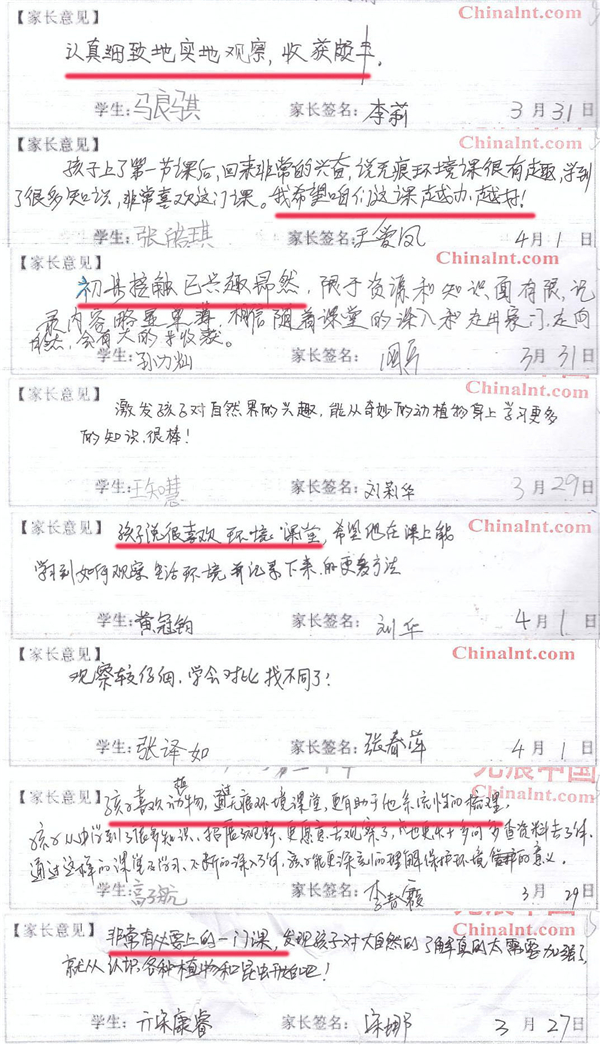 【家长意见】 ChinaInt.com
认真细致地实地观察，收获颇丰。
学生：马良骐 家长签名：李莉 3月31日
【家长意见】 ChinaInt.com
孩子上了第一节课后，回来非常的兴奋，说无痕环境课很有趣，学到
了很多知识，非常喜欢这门课。我希望咱们这课越办越好！
学生：张皓琪 家长签名：王爱凤 4月1日
【家长意见】 ChinaInt.com
初次接触已兴趣昂然，限于资源和知识面有限，记
录内容略显单薄，相信随着课堂的深入和走出家门，走向
自然，会有大的丰收获。
学生：孙力灿 家长签名： 3月31日
【家长意见】
激发孩子对自然界的兴趣，能从奇妙的动植物身上学习更多
的知识，很棒！
学生：王知慧 家长签名：刘莉华 3月29日
【家长意见】 ChinaInt.com
孩子说很喜欢环境课堂，希望他在课上能
学习到如何观察生活环境并记录下来的更多方法
学生：黄冠钧 家长签名：刘华 4月1日
【家长意见】 ChinaInt.com
观察较仔细，学会对比找不同了！
学生：张译如 家长签名：张春萍 4月1日
无痕中国
【家长意见】
孩子喜欢动植物，无痕环境课堂，更有助于他系统性的梳理，
孩子从中学到了很多知识，更愿意去观察了，也更乐于多问多查资料去了解，
通过这样的课堂学习，不断的深入了解，孩子能更深刻的理解保护环境的意义。
学生：高子航 家长签名：李春霞 3月29日
【家长意见】 ChinaInt.com
非常有必要上的一门课，发现孩子对大自然的了解真的太需要加强了
就从认识各种植物和昆虫开始吧！
学生：亓宋康睿 家长签名：宋娜 3月27日